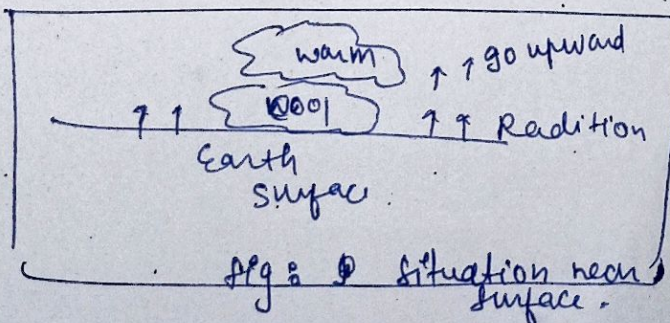 warm
go upward
cool
Radition
Earth
Surface
fig: Situation near
surface.